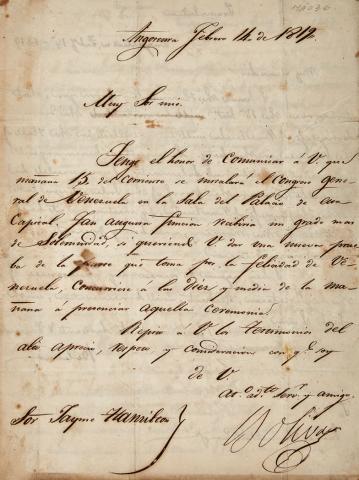 Angostura Febrero 14. de 1819.
Muy Sor. mio.
Tengo el honor de comunicar á V. que
mañana 15. del corriente se instalará el Congreso gene-
ral de Venezuela en la Sala del Palacio de esta
Capital. Tan augusta funcion recibira un grado mas
de Solemnidad, si queriendo V. dar una nueva prue-
ba de la parte que toma por la felicidad de Ve-
nezuela, concurriese á las diez y media de la ma-
ñana á presenciar aquella ceremonia.
Repito á V. los testimonios del
alto aprecio, respeto y consideracion con q.e soy
de V.
At.o ad.to Serv.r y amigo.
Bolivar
Sor. Jayme Hamilton